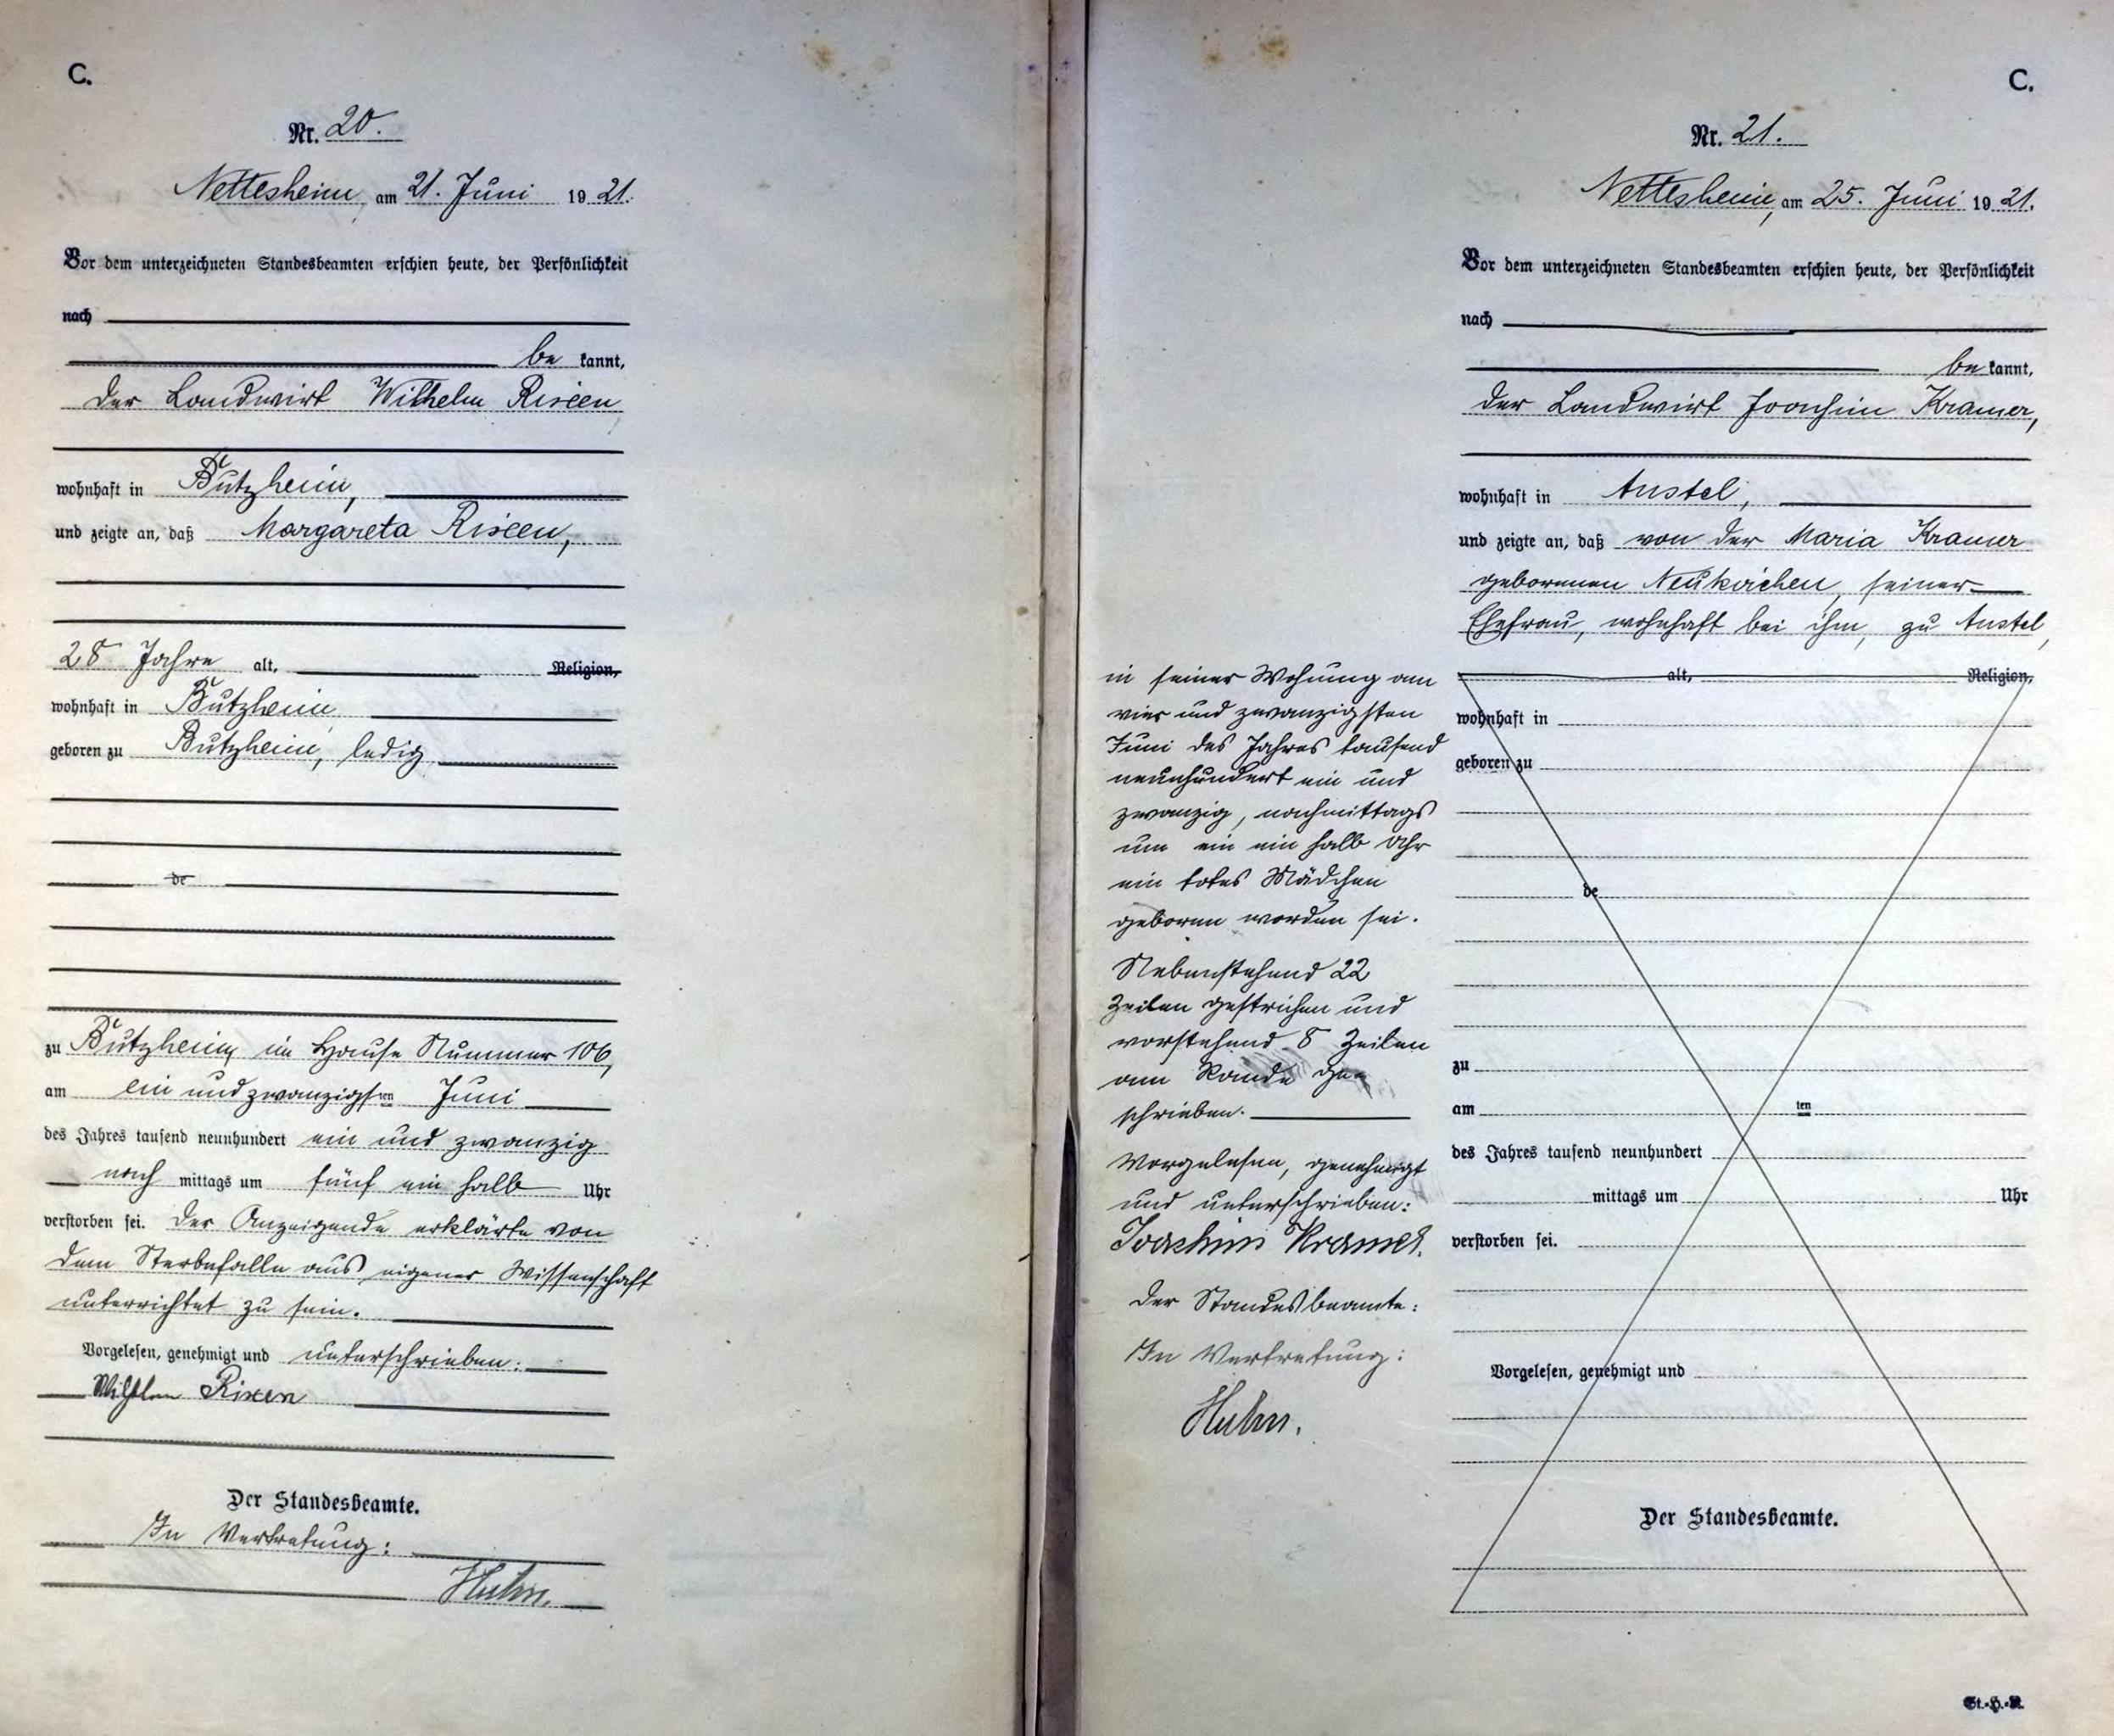 C.
Nr. 20.
Nettesheim, am 21. Juni 1921.
Vor dem unterzeichneten Standesbeamten erschien heute, der Persönlichkeit
nach
be kannt,
der Landwirt Wilhelm Rixen
wohnhaft in Butzheim,
und zeigte an, daß Margareta Rixen,
28 Jahre alt, Religion,
wohnhaft in Butzheim
geboren zu Butzheim, ledig
de
zu Butzheim, im Hause Nummer 106,
am ein und zwanzigsten Juni
des Jahres tausend neunhundert ein und zwanzig
nach mittags um fünf ein halb Uhr
verstorben sei. Der Anzeigende erklärte von
dem Sterbefalle aus eigener Wissenschaft
unterrichtet zu sein.
Vorgelesen, genehmigt und unterschrieben:
Wilhelm Rixen
Der Standesbeamte.
In Vertretung:
Huhn.
C.
Nr. 21.
Nettesheim, am 25. Juni 1921.
Vor dem unterzeichneten Standesbeamten erschien heute, der Persönlichkeit
nach
be kannt,
der Landwirt Joachim Kramer,
wohnhaft in Anstel,
und zeigte an, daß von der Maria Kramer
geborenen Neukirchen, seiner
Ehefrau, wohnhaft bei ihm, zu Anstel,
in seiner Wohnung am
vier und zwanzigsten
Juni des Jahres tausend
neunhundert ein und
zwanzig, nachmittags
um ein ein halb Uhr
ein totes Mädchen
geboren worden sei.
Nebenstehend 22
Zeilen gestrichen und
vorstehend 8 Zeilen
am Rande ge
schrieben.
Vorgelesen, genehmigt
und unterschrieben:
Joachim Kramer.
Der Standesbeamte:
In Vertretung:
Huhn.
alt, Religion,
wohnhaft in
geboren zu
de
zu
am ten
des Jahres tausend neunhundert
mittags um Uhr
verstorben sei.
Vorgelesen, genehmigt und
Der Standesbeamte.
St.-H.-R.